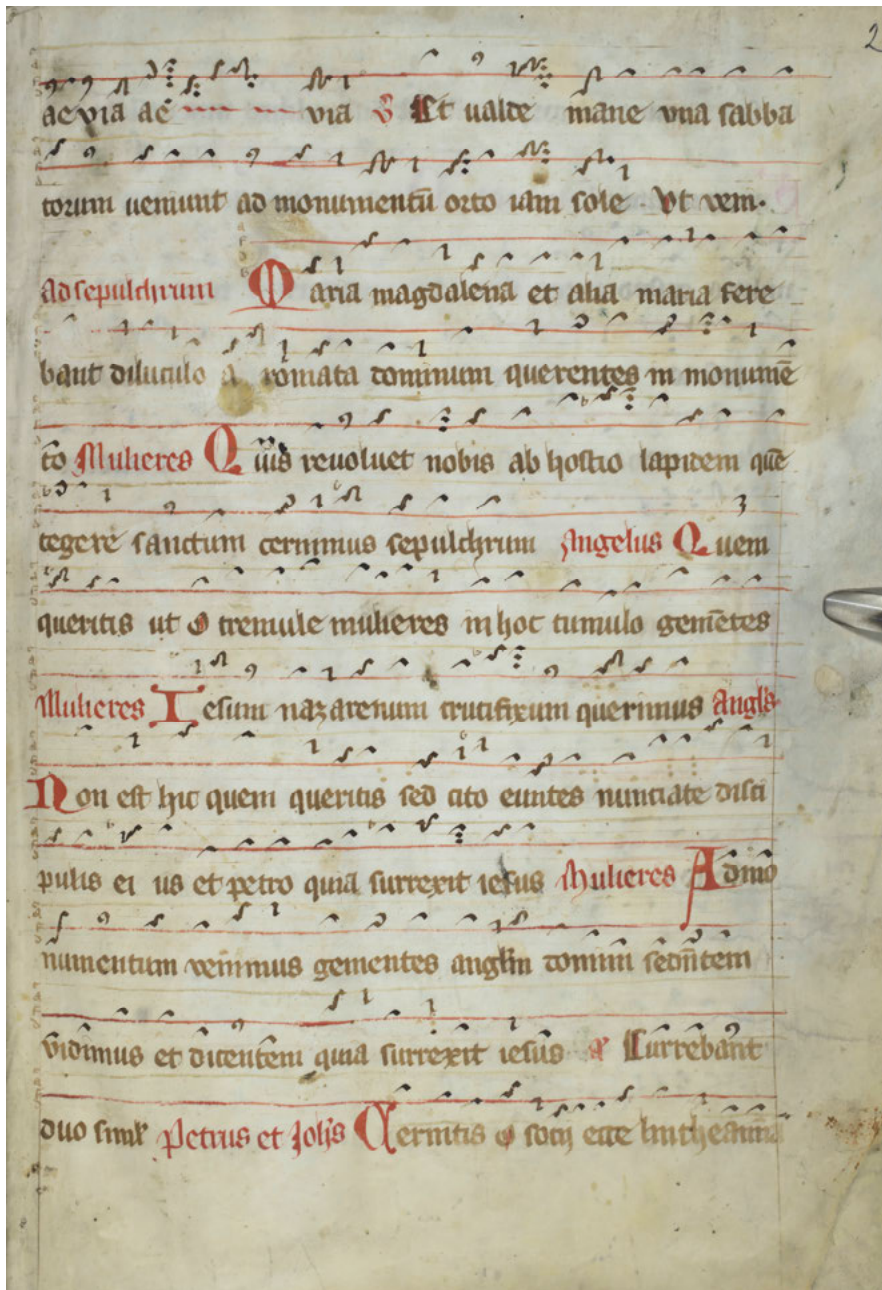 2
aevia aē via ℣ Et ualde mane una sabba
torum ueniunt ad monumentū orto iam sole · Vt ven·
Ad sepulchrum Maria magdalena et alia maria fere
bant diluculo a romata dominum querentes in monumē
to Mulieres Quis reuoluet nobis ab hostio lapidem quē
tegere sanctum cernimus sepulchrum Angelus Quem
queritis ut o tremule mulieres in hoc tumulo gemētes
Mulieres Iesum nazarenum crucifixum querimus Angls
Non est hic quem queritis sed cito euntes nunciate disci
pulis ei us et petro quia surrexit iesus Mulieres Ad mo
numentum venimus gementes anglm domini sedntem
vidimus et dicentem quia surrexit iesus Currebant
duo simł Petrus et Johs Cernitis o socij ecce lintheamina